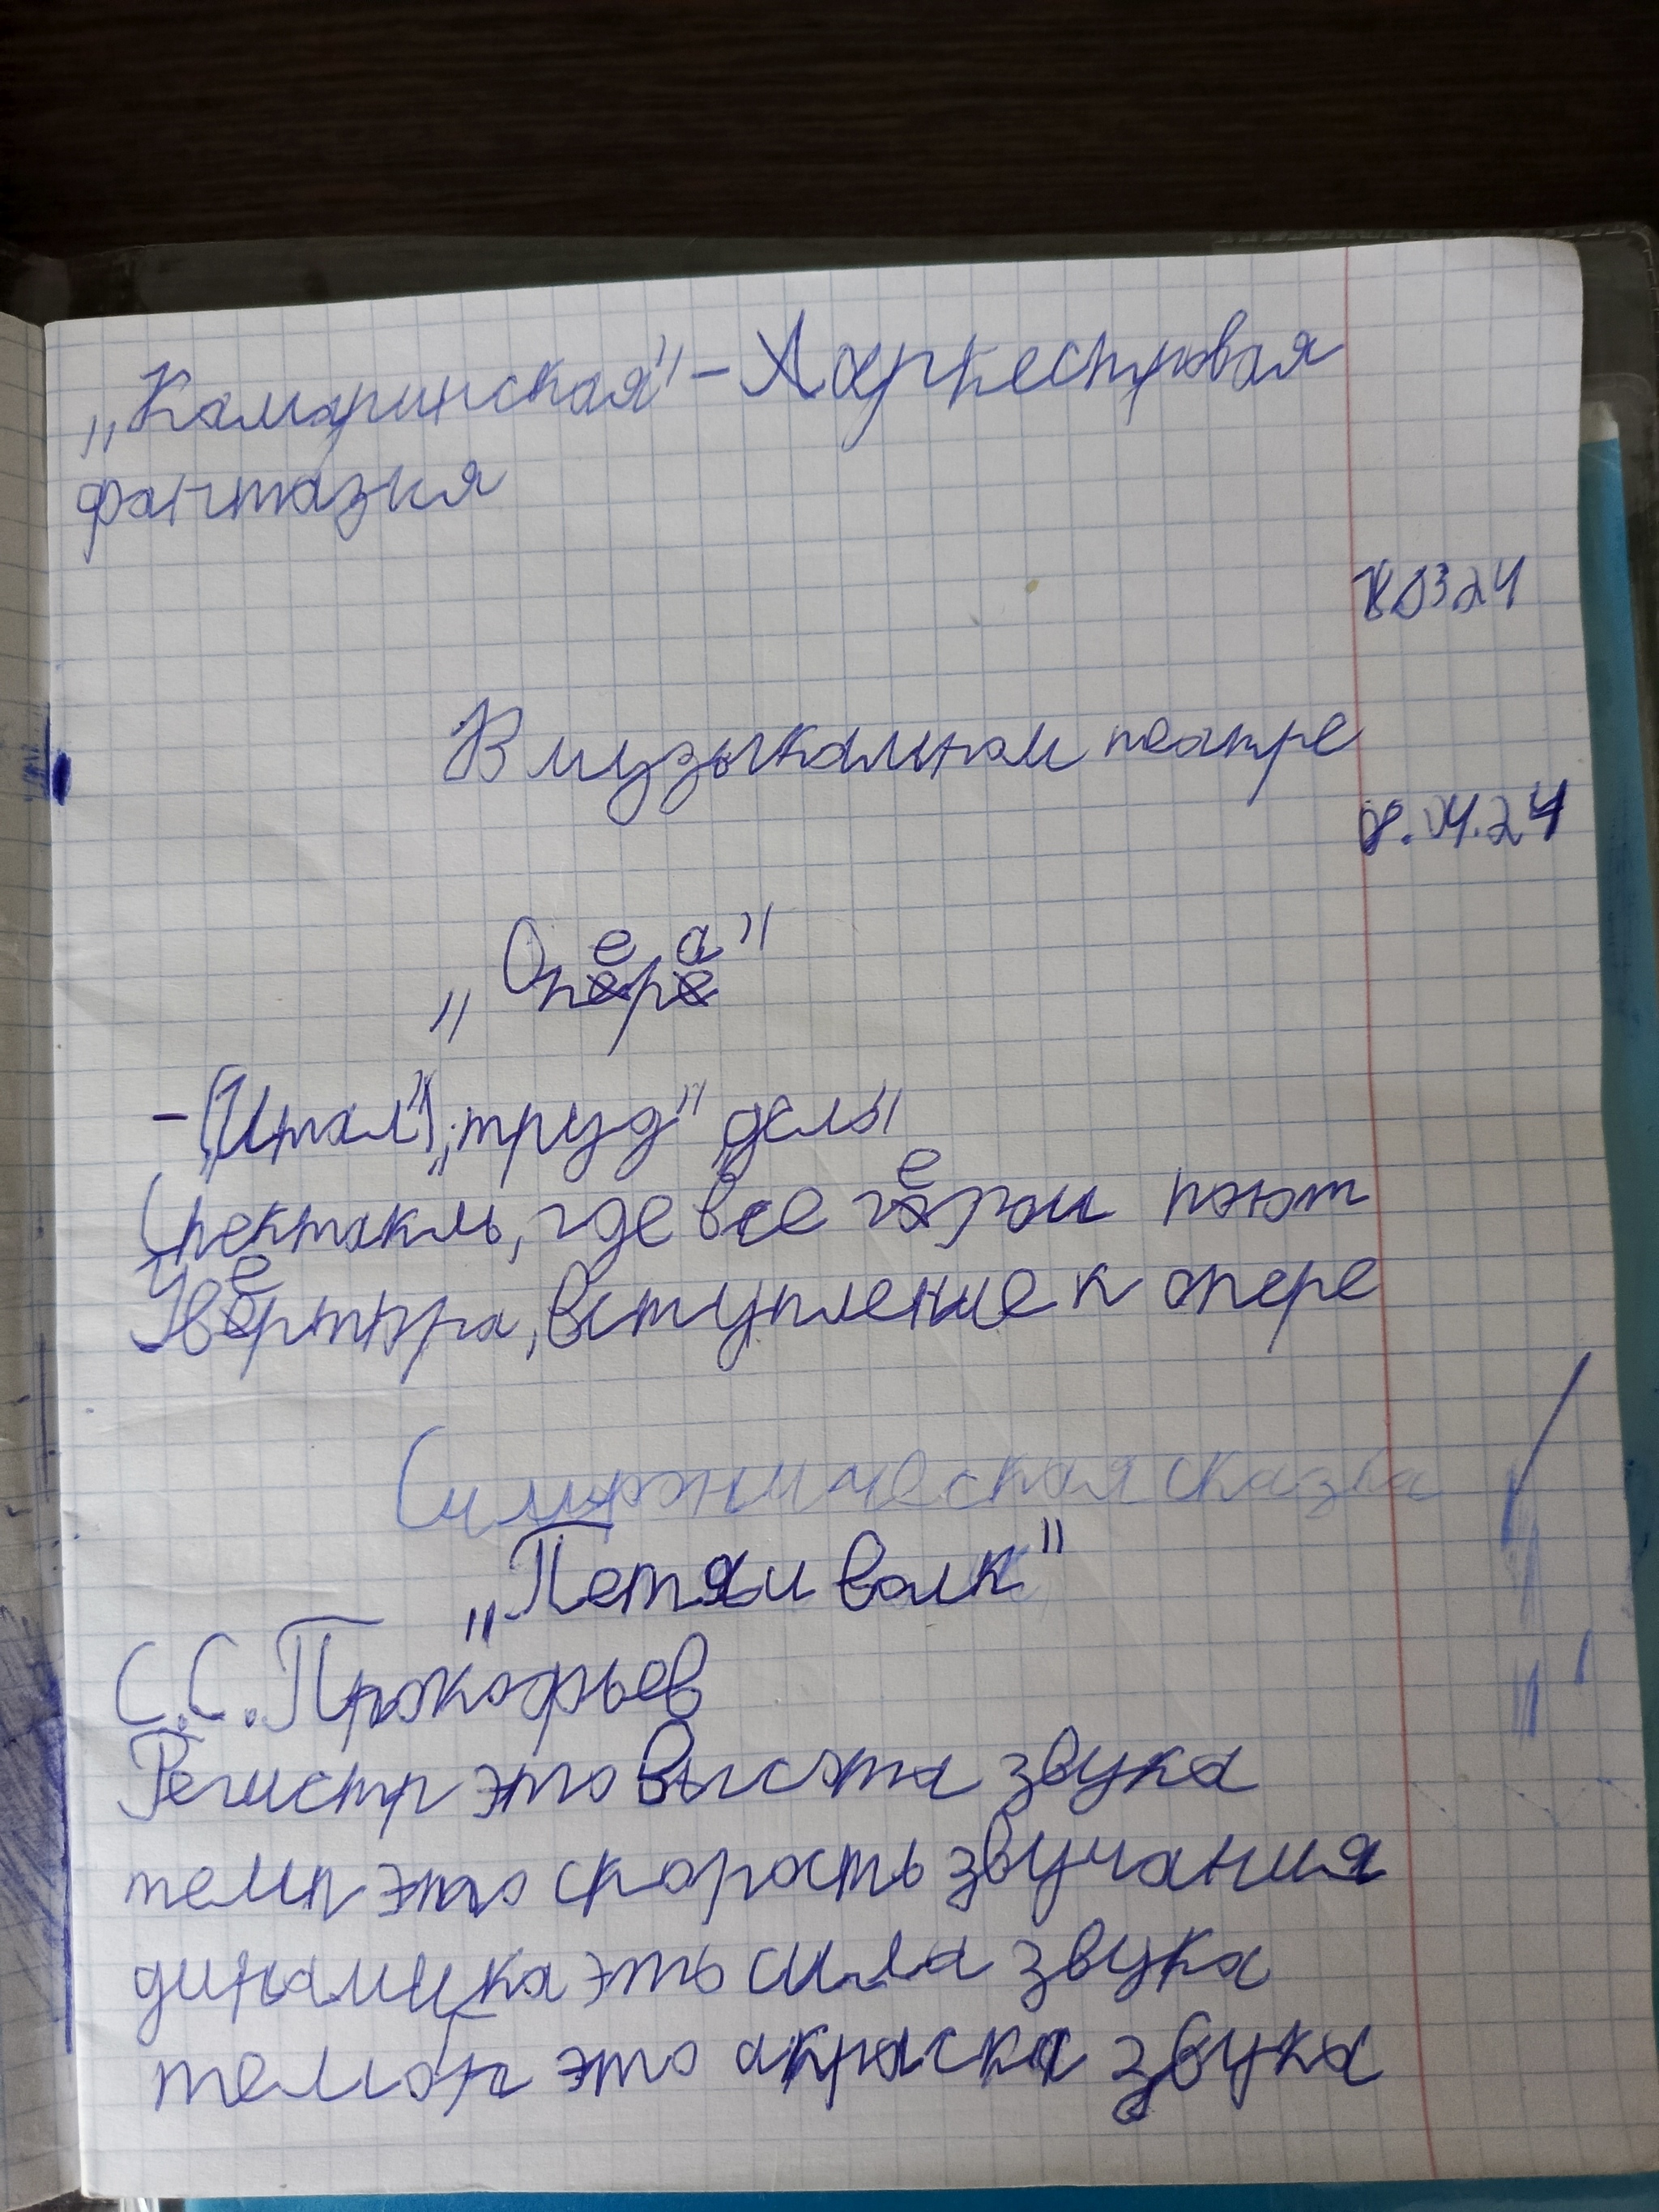 „Камаринская" - Аркестровая
фантазия
18.03 24
В музыкальном театре
8.04.24
„Опера"
- („Итал") „труд" „дела"
Спектакль, где все герои поют
Увертюра, вступление к опере
Симфоническая сказка
„Петя и волк"
С.С. Прокофьев
Регистр это высота звука
темп это скорость звучания
динамика это сила звука
тембр это акраска звука